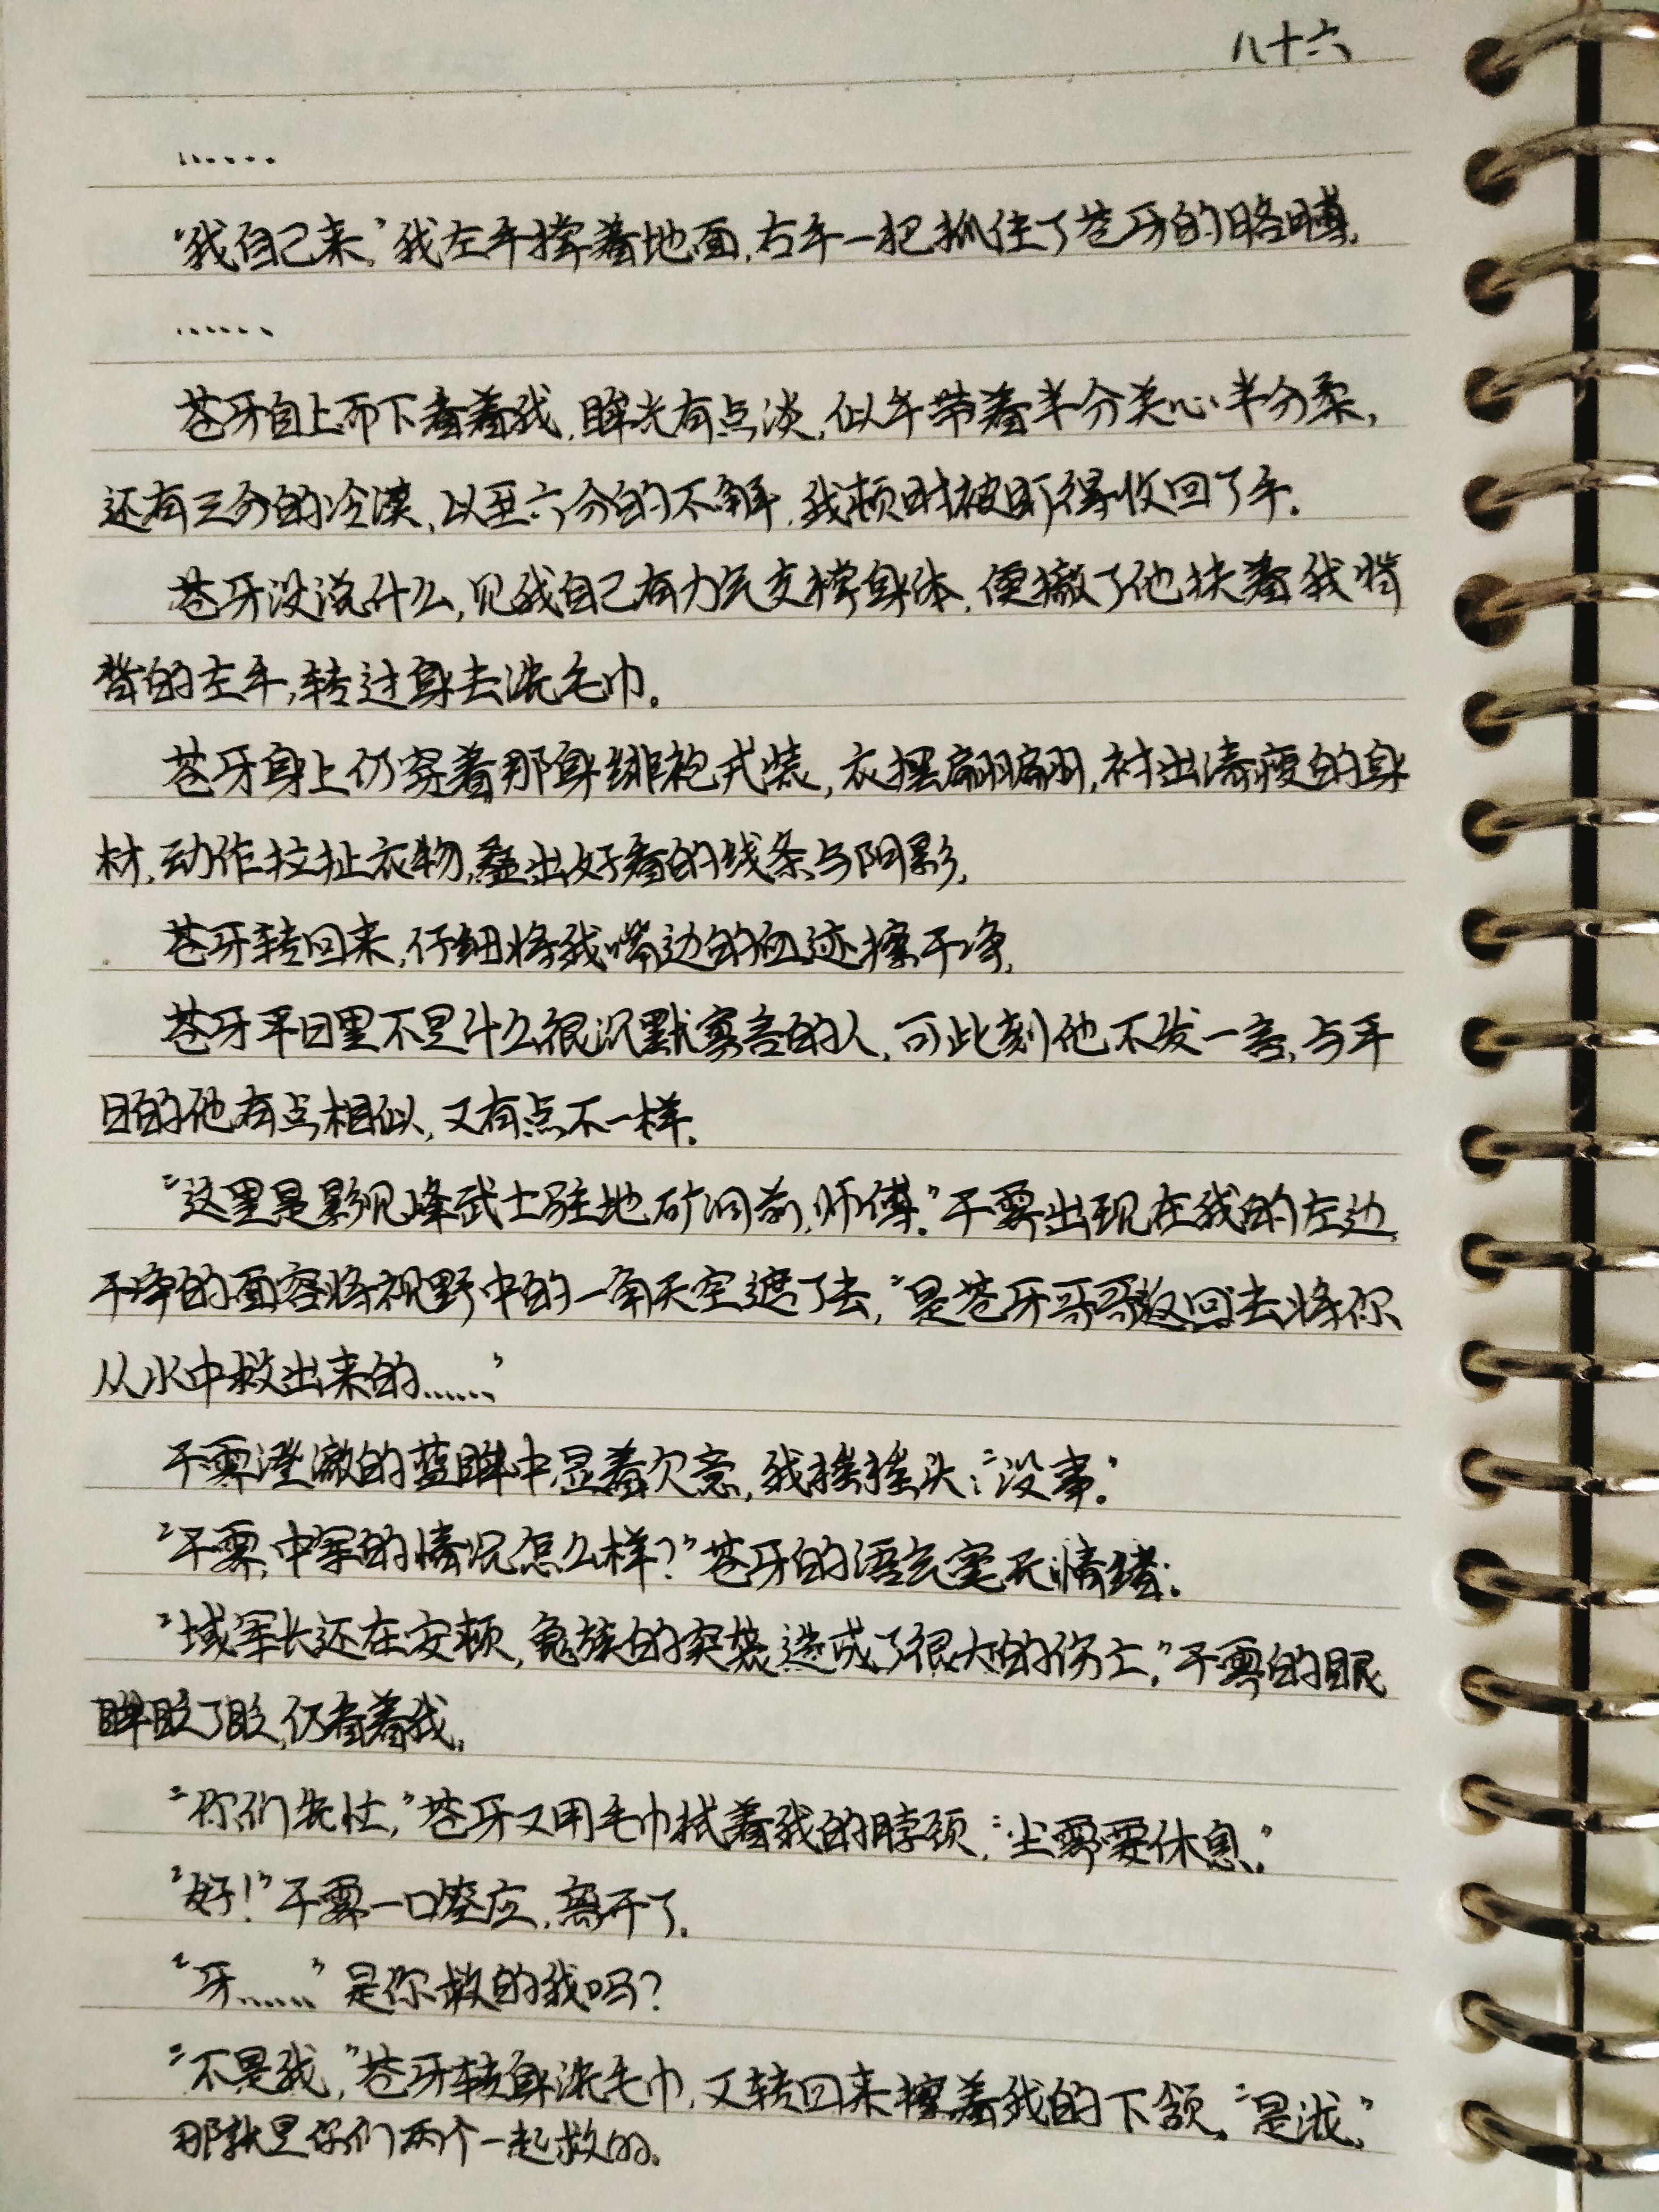 八十六
……
“我自己来。”我左手撑着地面,右手一把抓住了苍牙的胳膊。
……
苍牙自上而下看着我,眸光有点淡,似乎带着半分关心半分柔,
还有三分的冷漠,以至六分的不解,我顿时被盯得收回了手。
苍牙没说什么,见我自己有力气支撑身体,便撤了他扶着我脊
背的左手,转过身去洗毛巾。
苍牙身上仍穿着那身绯袍式装,衣摆翩翩,衬出清瘦的身
材,动作拉扯衣物,叠出好看的线条与阴影。
苍牙转回来,仔细将我嘴边的血迹擦干净。
苍牙平日里不是什么很沉默寡言的人,可此刻他不发一言,与平
日的他有点相似,又有点不一样。
“这里是影见峰武士驻地矿洞前,师傅。”千雾出现在我的左边,
干净的面容将视野中的一角天空遮了去,“是苍牙哥哥返回去将你
从水中救出来的……”
千雾澄澈的蓝眸中显着欠意,我摇摇头:“没事。”
“千雾,中军的情况怎么样?”苍牙的语气毫无情绪。
“域军长还在安顿,鬼族的突袭造成了很大的伤亡。”千雾的眼
眸眨了眨,仍看着我。
“你们先忙,”苍牙又用毛巾拭着我的脖颈,“尘雾要休息。”
“好!”千雾一口答应,离开了。
“牙……”是你救的我吗?
“不是我,”苍牙转身洗毛巾,又转回来擦着我的下颌。“是泷。”
那就是你们两个一起救的。